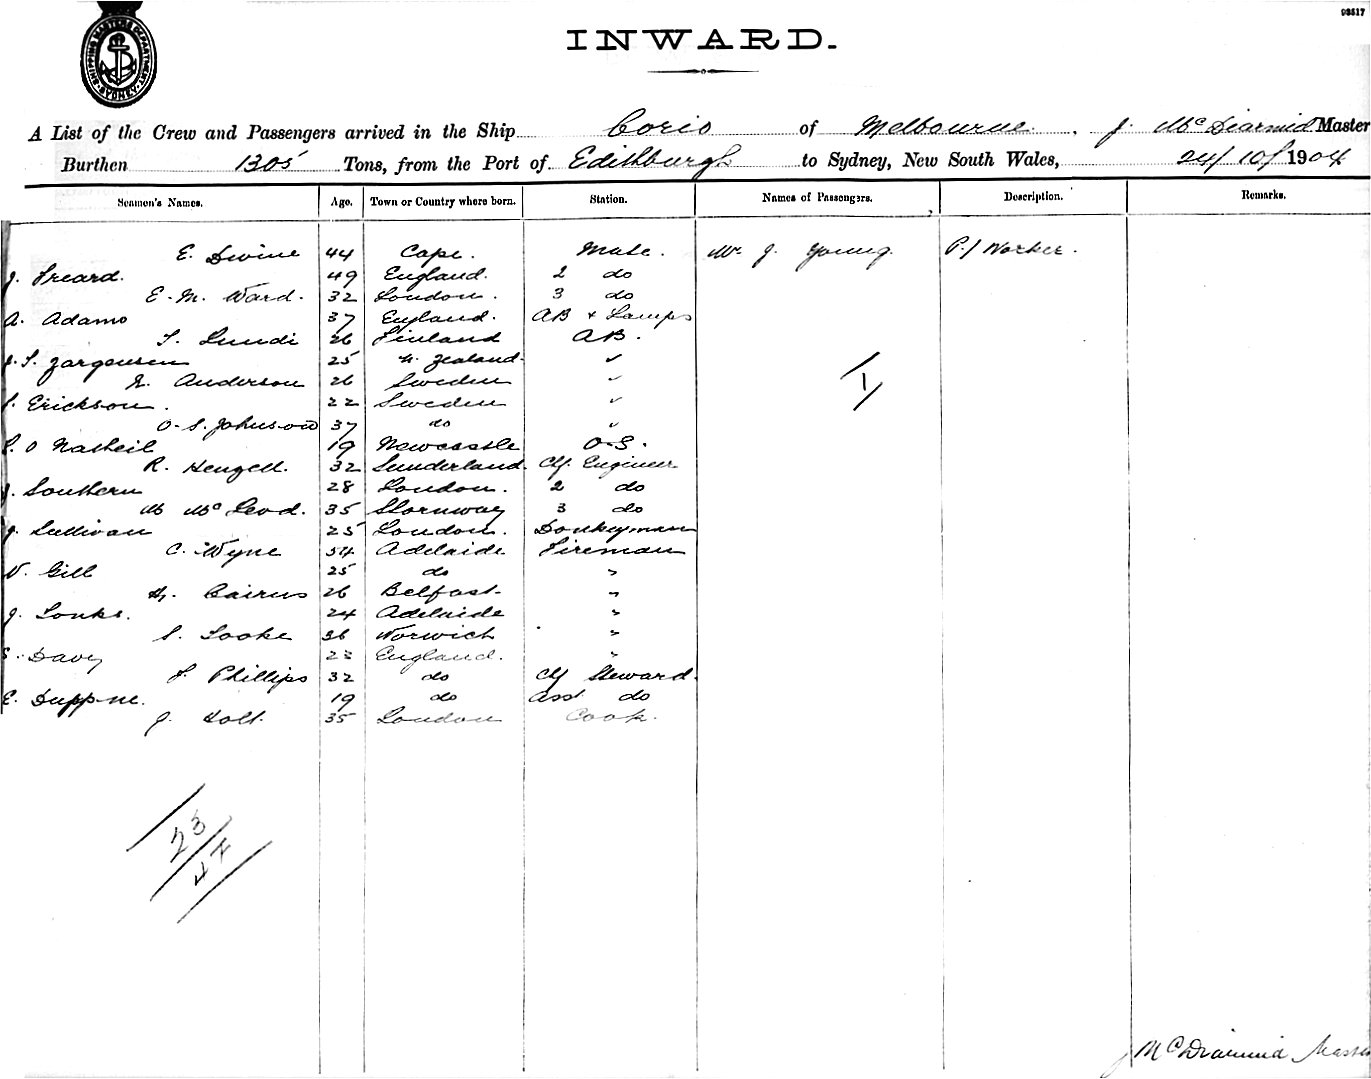 98517
SHIPPING MASTERS DEPARTMENT SYDNEY
INWARD.
A List of the Crew and Passengers arrived in the Ship Corio of Melbourne. J. McDiarmid Master
Burthen 1305 Tons, from the Port of Edithburgh to Sydney, New South Wales, 24/10/1904
Seamen's Names. Age. Town or Country where born. Station. Names of Passengers. Description. Remarks.
E. Divine 44 Cape. Mate. Mr J. Young. P/ Worker.
J. Freard. 49 England. 2 do
E. M. Ward. 32 London. 3 do
A. Adams 37 England. AB & Lamps
Lundi 26 Finland AB.
25 N. Zealand. "
Anderson 26 Sweden "
Erickson. 22 Sweden "
O. S. Johnson 37 do "
19 Newcastle O.S.
R. Hengell. 32 Sunderland. Cf. Engineer
J. Southern 28 London. 2 do
M McLeod. 35 Stornway 3 do
J. Sullivan 25 London. Donkeyman
C. Wyne 54 Adelaide Fireman
W. Gill 25 do "
H. Cairns 26 Belfast. "
J. Lonks. 24 Adelaide "
S. Tooke 36 Norwich "
Davy 23 England. "
Phillips 32 do Cf Steward.
E. 19 do Asst do
J. Holt. 35 London Cook.
1
23
47
J McDiarmid Master